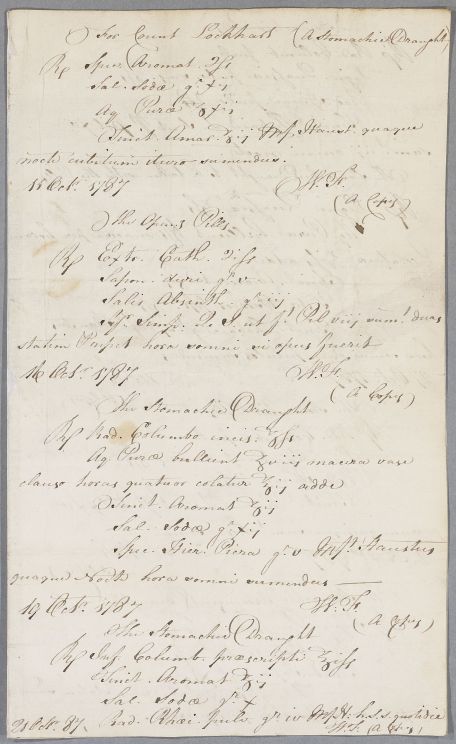 For Count Lockhart (A Stomachic Draught)
℞ Spec. Aromat. ℈ſs
Sal. Sodæ gr.
Aq. Puræ
Tinct. Amar. ʒij Mſ. Haust. quaque
nocte cubitum iturus sumendus.
15 Octr. 1787
W. F.
(A Copy)
The Aperient Pills
℞ Extr. Cath. ℈iſs
Sapon. duri gr. v
Salis Absinth. gr. iij
Syr. Simp. Q. S. ut ft. Pil. viij sumt. duas
statim & repet hora somni si opus fuerit
16 Octr. 1787
W. F.
(A Copy)
The Stomachic Draught
℞ Rad. Columbo incis.
Aq. Puræ bullient ℥viij macera vase
clauso horas quatuor colatur adde
Tinct. Aromat ʒij
Sal. Sodæ gr.
Spec. Hier. Picra gr. v Mſt. Haustus
quaque Nocte hora somni sumendus
19 Octr. 1787
W. F.
(A Copy)
The Stomachic Draught
℞ Inf. Columb. præscripti ℥iſs
Tinct. Aromat ʒij
Sal. Sodæ gr. x
Rad. Rhæi. pulv. gr. iv Mſt. H. h. s. s. quotidie
21 Oct. 87.
W. F. (A Copy)